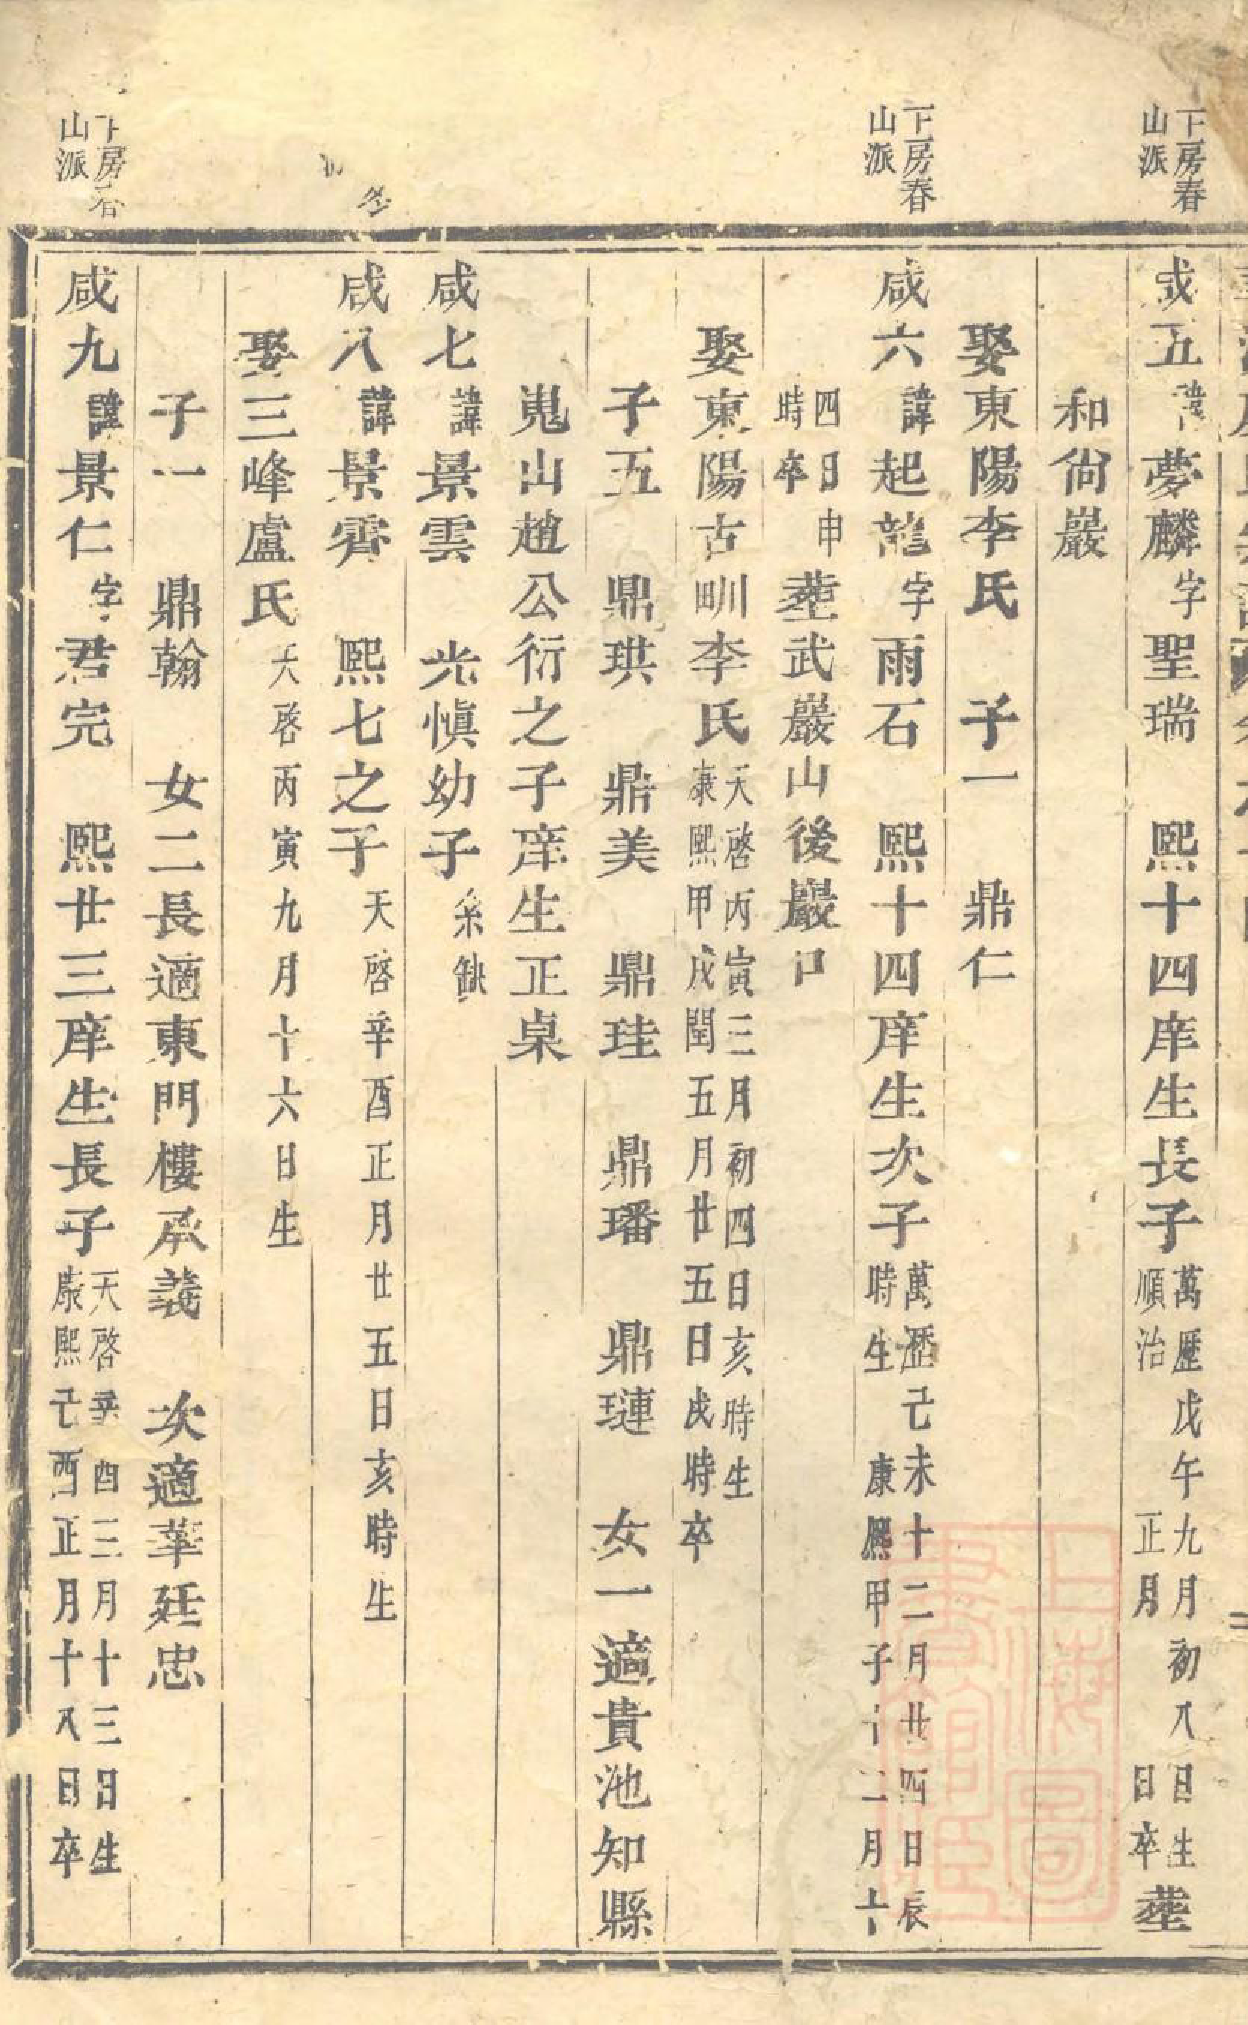 下房春
山派
咸五諱夢麟字聖瑞　熙十四庠生長子萬歷戊午九月初八日生
順治　正月　日卒葬
和尙巖
娶東陽李氏　子一　鼎仁
下房春
山派
咸六諱起龍字雨石　熙十四庠生次子萬歷己未十二月廿四日辰
時生　康熙甲子十二月十
四日申
時卒　葬武巖山後巖口
娶東陽古畎李氏天啓丙寅三月初四日亥時生
康熙甲戌閏五月廿五日戌時卒
子五　鼎珙　鼎美　鼎珪　鼎璠　鼎璉　女一適貴池知縣
嵬山趙公衍之子庠生正桌
咸七諱景雲　光愼幼子系缺
咸八諱景霽　熙七之子天啓辛酉正月廿五日亥時生
娶三峰盧氏天啓丙寅九月十六日生
子一　鼎翰　女二長適東門樓承義　次適華廷忠
下房春
山派
咸九諱景仁字君完　熙廿三庠生長子天啓辛酉三月十三日生
康熙己酉正月十八日卒